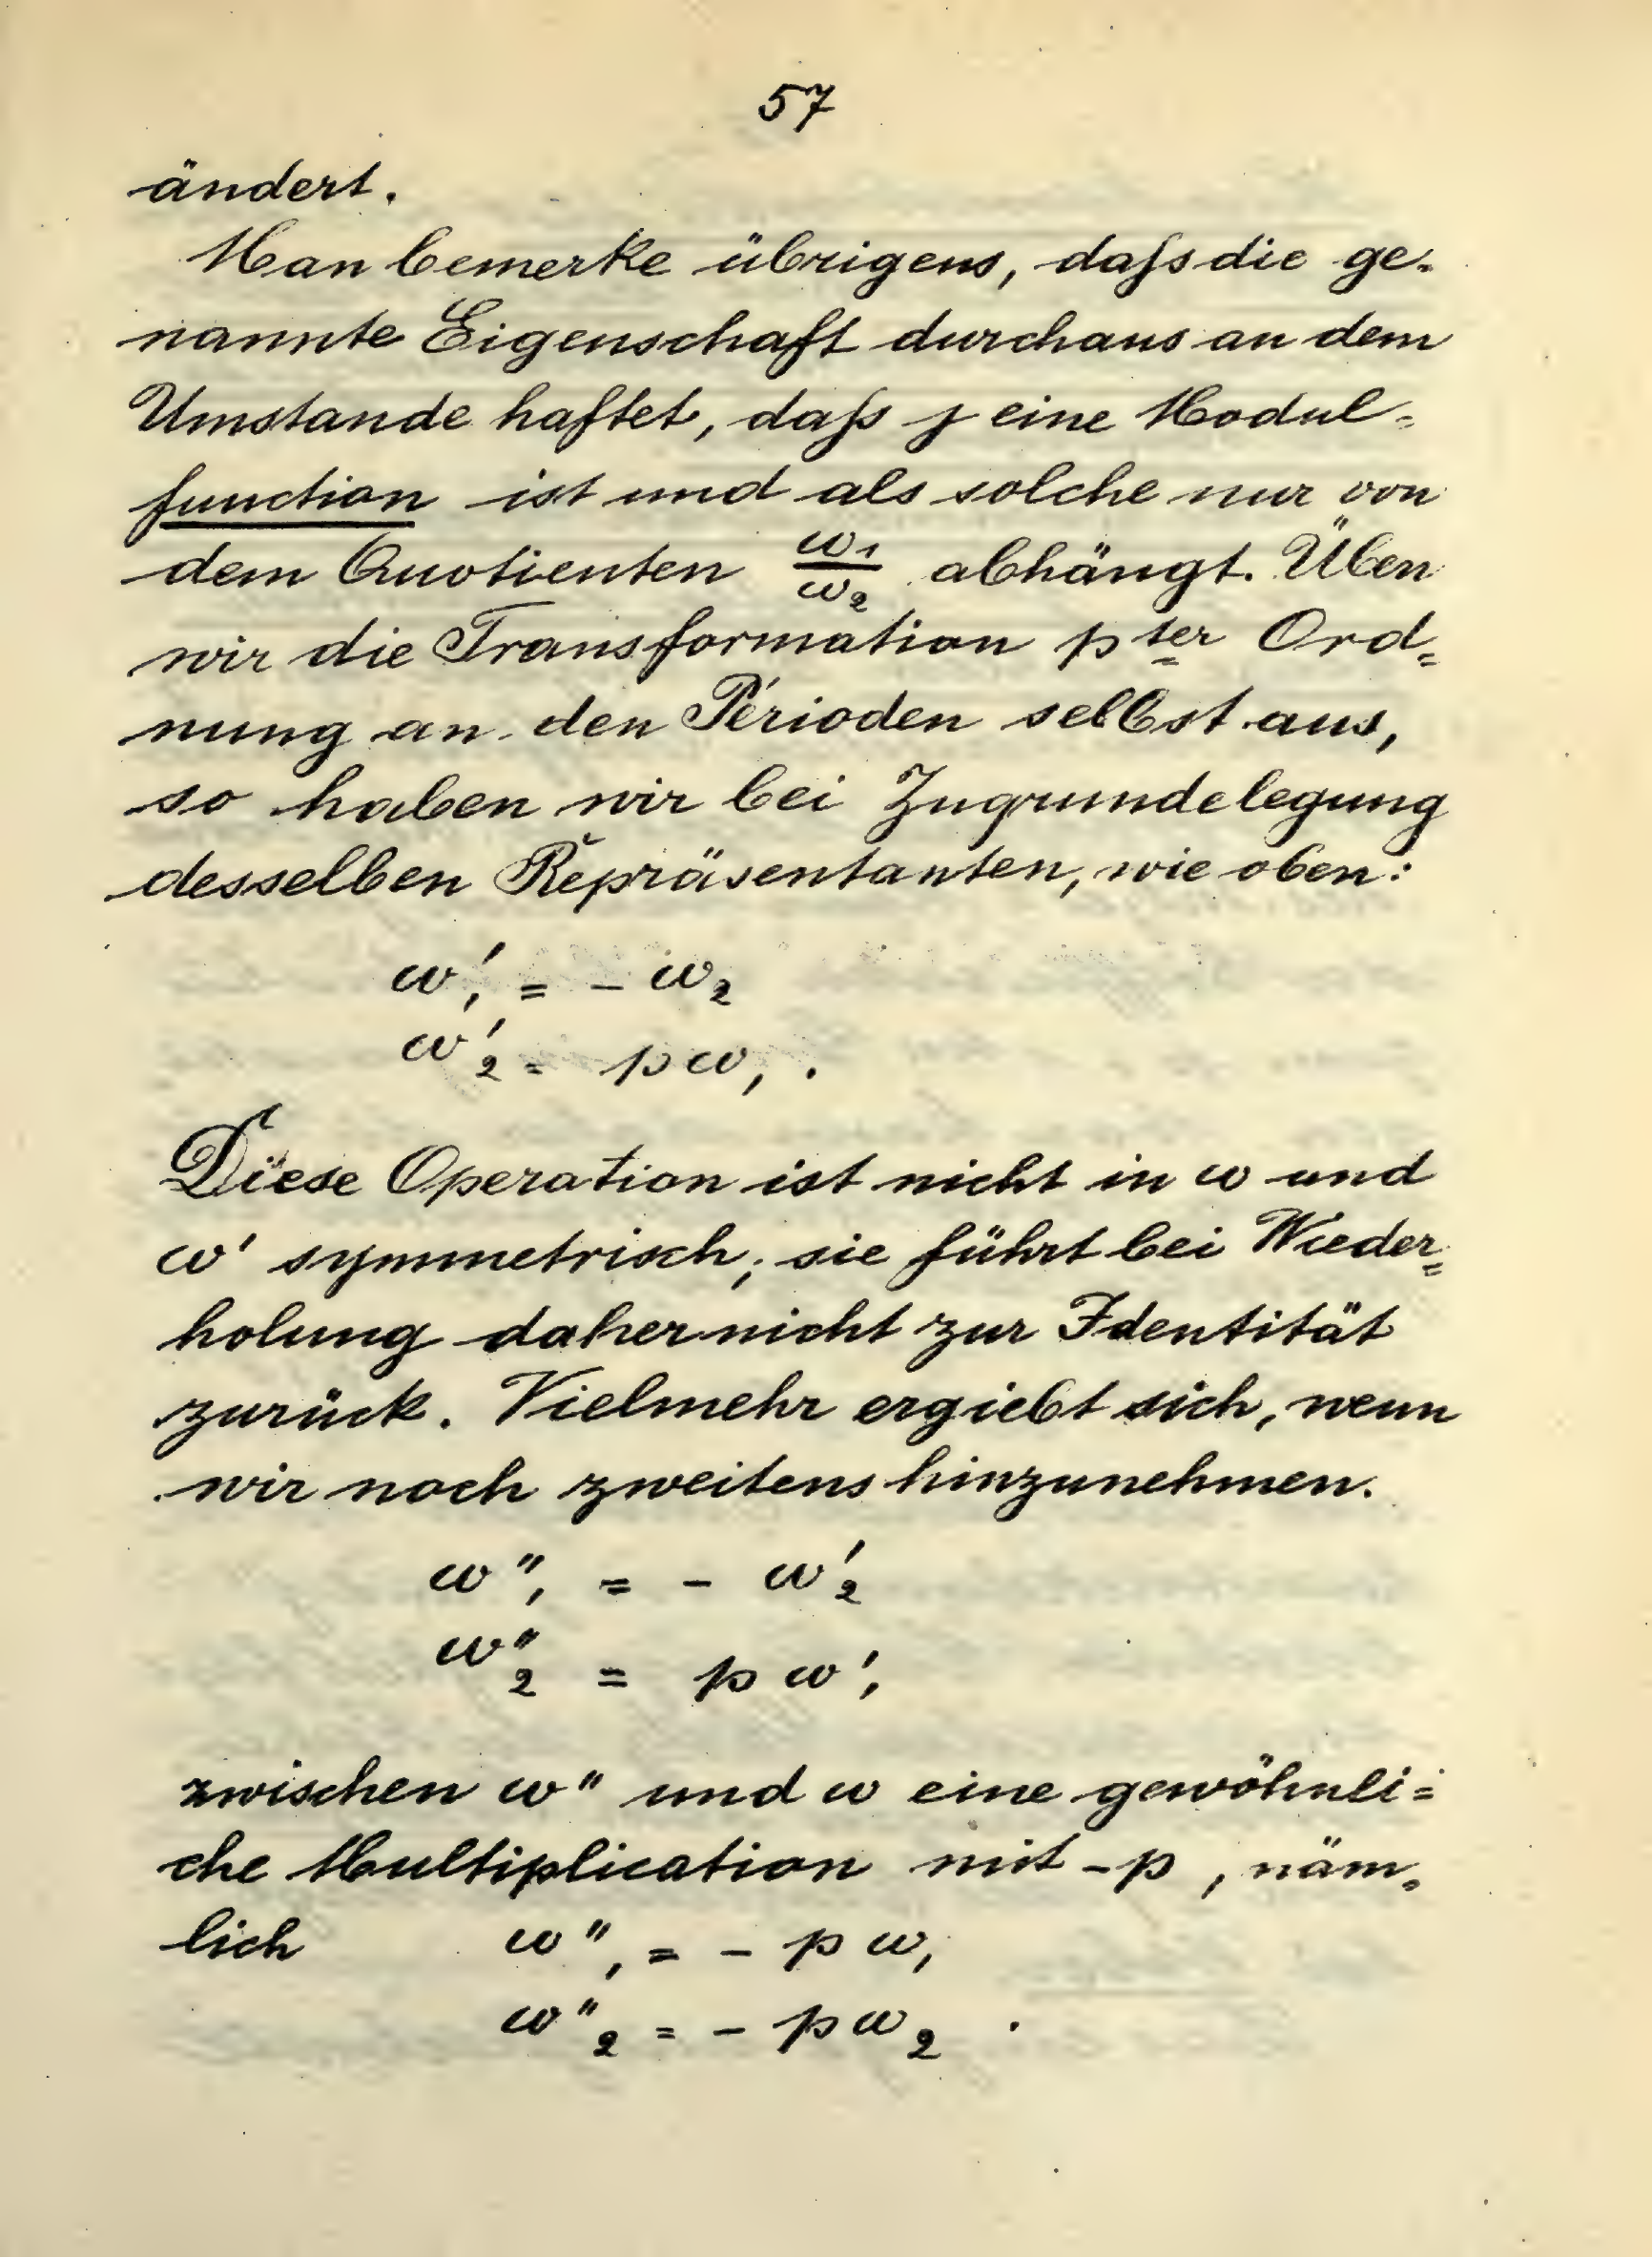 57
ändert.
Man bemerke übrigens, dass die ge-
nannte Eigenschaft durchaus an dem
Umstande haftet, dass j eine Modul-
function ist und als solche nur von
dem Quotienten ω₁/ω₂ abhängt. Üben
wir die Transformation pter Ord-
nung an den Perioden selbst aus,
so haben wir bei Zugrundelegung
desselben Repräsentanten, wie oben:
ω₁' = - ω₂
ω₂' = pω₁.
Diese Operation ist nicht in ω und
ω' symmetrisch; sie führt bei Wieder-
holung daher nicht zur Identität
zurück. Vielmehr ergiebt sich, wenn
wir noch zweitens hinzunehmen.
ω₁" = - ω₂'
ω₂" = p ω₁'
zwischen ω" und ω eine gewöhnli-
che Multiplication mit -p, näm-
lich ω₁" = - p ω₁
ω₂" = - p ω₂.